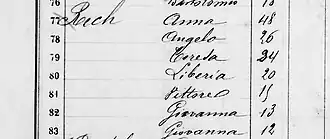 76 Bartolomeo 18
77 Rich Anna 48
78 Angelo 26
79 Tereda 24
80 Liberia 20
81 Vittore 15
82 Giovanna 13
83 Giovanna 12